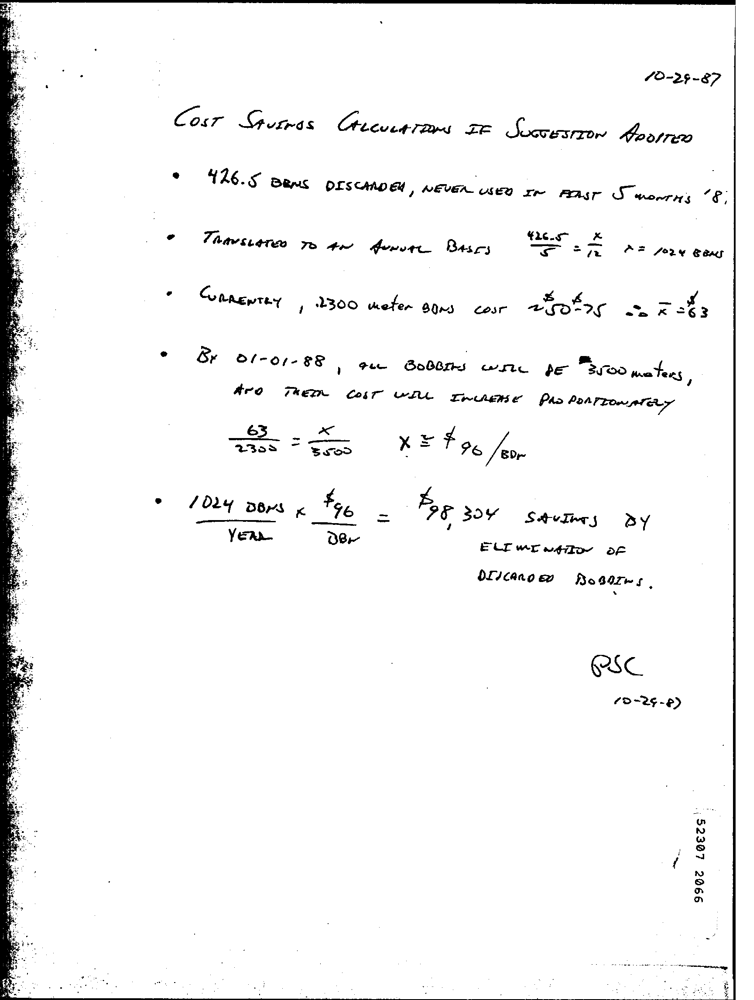 10-29-87
COST SAVINGS CALCULATIONS IF SUGGESTION ADOPTED
• 426.5 BBNS DISCARDED, NEVER USED IN FIRST 5 MONTHS '8
• TRANSLATED TO AN ANNUAL BASIS 426.5/5 = x/12 x = 1024 BBNS
• CURRENTLY, 2300 meter BBNS COST ~$50-$75 ∴ x̄ = $63
• BY 01-01-88, ALL BOBBINS WILL BE 3500 meters,
AND THEIR COST WILL INCREASE PROPORTIONATELY
63/2300 = x/3500 x ≅ $96/BBN
• 1024 BBNS/YEAR x $96/BBN = $98,304 SAVINGS BY
ELIMINATION OF
DISCARDED BOBBINS.
PSC
10-29-87
52307 2066